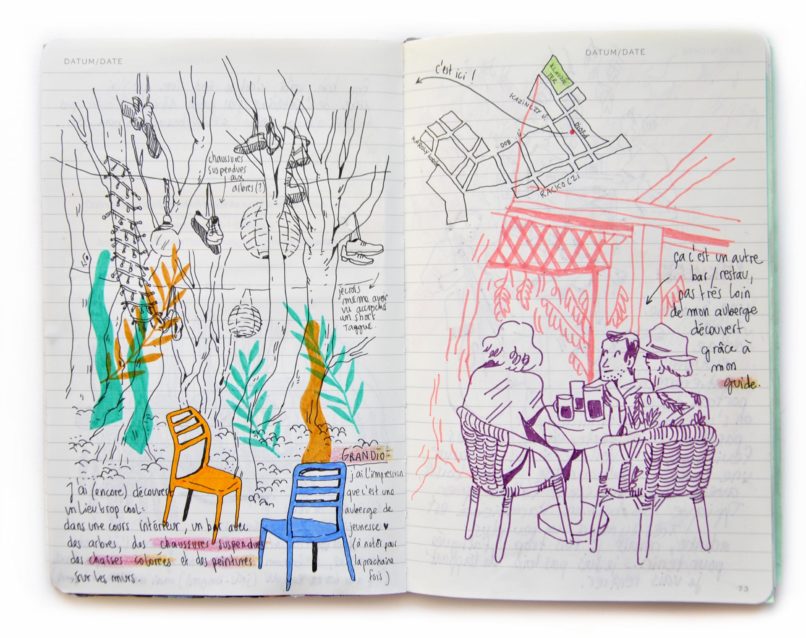 DATUM/DATE
chaussures
suspendues
aux
arbres (?)
je crois
même avoir
vu accroché
un short
GRANDIO
j'ai l'impression
que c'est une
auberge de
jeunesse ♥
(à noter pour
la prochaine
fois)
j'ai (encore) découvert
un lieu trop cool:
dans une cours intérieur, un bar avec
des arbres, des chaussures suspendues
des chaises colorées et des peintures
sur les murs.
DATUM/DATE
c'est ici !
DOB
RACKOCZI
ça c'est un autre
bar/restau,
pas très loin
de mon auberge
découvert
grâce à
mon
guide.
73